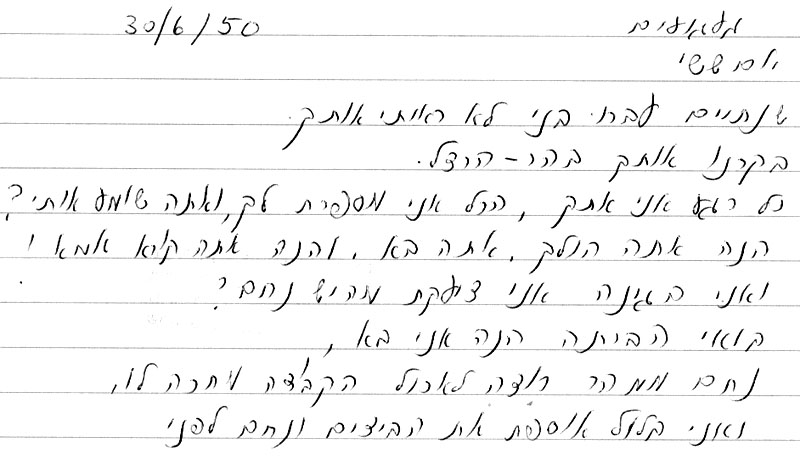 געגועים 30/6/50
יום ששי
שנתיים עברו בני לא ראיתי אותך.
בקרנו אותך בהר-הרצל.
כל רגע אני אתך, הכל אני מספרת לך, ואתה שומע אותי?
הנה אתה הולך, אתה בא, והנה אתה קורא אמא!
ואני בגינה אני צועקת מהיש נחם?
בואי הביתה הנה אני בא,
נחם ממהר רוצה לאכול הקבוצה מחכה לו,
ואני בלול אוספת את הביצים ונחם לפני